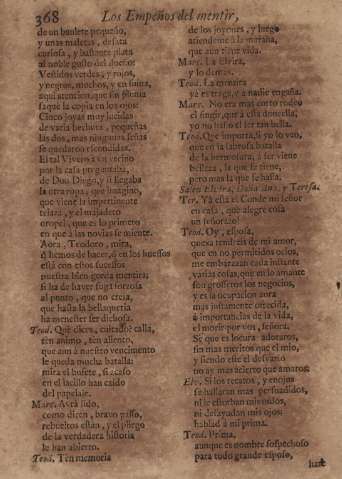 368 Los Empeños del mentir,
de un baulete pequeño,
y unas maletas, desata
curiosa, y bastante plata
al noble gusto del dueño:
Vestidos verdes, y rojos,
y negros, muchos, y en suma,
aqui atencion, que sin pluma
saquè la copia en los ojos:
Cinco joyas muy lucidas
de varia hechura, pequeñas
las dos, mas ningunas señas
se quedaron escondidas.
El tal Vivero à un vecino
por la casa pregunta
de Don Diego, y
la otra ropa, que imagino,
que viene la impertinente
y el majadero
oropel, que es lo primero
en que à las novias se miente.
Aora, Teodoro, mira,
què hemos de hacer, ò en los huessos
està con estos sucessos
nuestra bien gorda mentira;
si la de haver fuga forzosa
al punto, que no creìa,
que hasta la bellaqueria
ha menester ser dichosa.
Teod. Què dices, cuitado? calla,
ten animo, ten aliento,
que aun à nuestro vencimiento
le queda mucha batalla:
mira el bufete, si acaso
en el lacillo han caìdo
del papelaje.
Marc. Avrà sido,
como dicen, bravo passo,
rebueltos estàn, y el pliego
de la verdadera historia
le han abierto.
Teod. Ten memoria
de los joyones, y luego
atiendeme à la maraña,
que aun tiene vida.
Marc. La Elvira,
y lo demas.
Teod. La mentira
yà es treta, y à nadie engaña.
Marc. No era mas corto rodeo
el fingir, que à esta doncella,
yo no
Teod. Què importa, si yo lo veo,
que en la sabrosa batalla
de la hermosura, à ser viene
belleza, la que se tiene,
pero mas la que se halla.
Salen Elvira, Doña Ana, y Teresa.
Ter. Yà està el Conde mi señor
en casa, què alegre cosa
un señorazo!
Teod. Oy, esposa,
quexa tendreis de mi amor,
que en no permitidos ocios,
me embarazan cada instante
varias cosas, que en lo amante
son groseros los negocios,
y es la ocupacion aora
mas justamente ofrecida,
à importancias de la vida,
el morir por vos, señora.
Sè que es locura adoraros,
sin mas meritos que el mio,
y siendo este el desvario
no ay mas acierto que amaros:
Elv. Si los recatos, y enojos
se hallaran mas persuadidos,
ni le estorban mis oìdos,
ni desayudan mis ojos:
hablad à mi prima.
Teod. Prima,
aunque es nombre sospechoso
para todo grande esposo,
harè